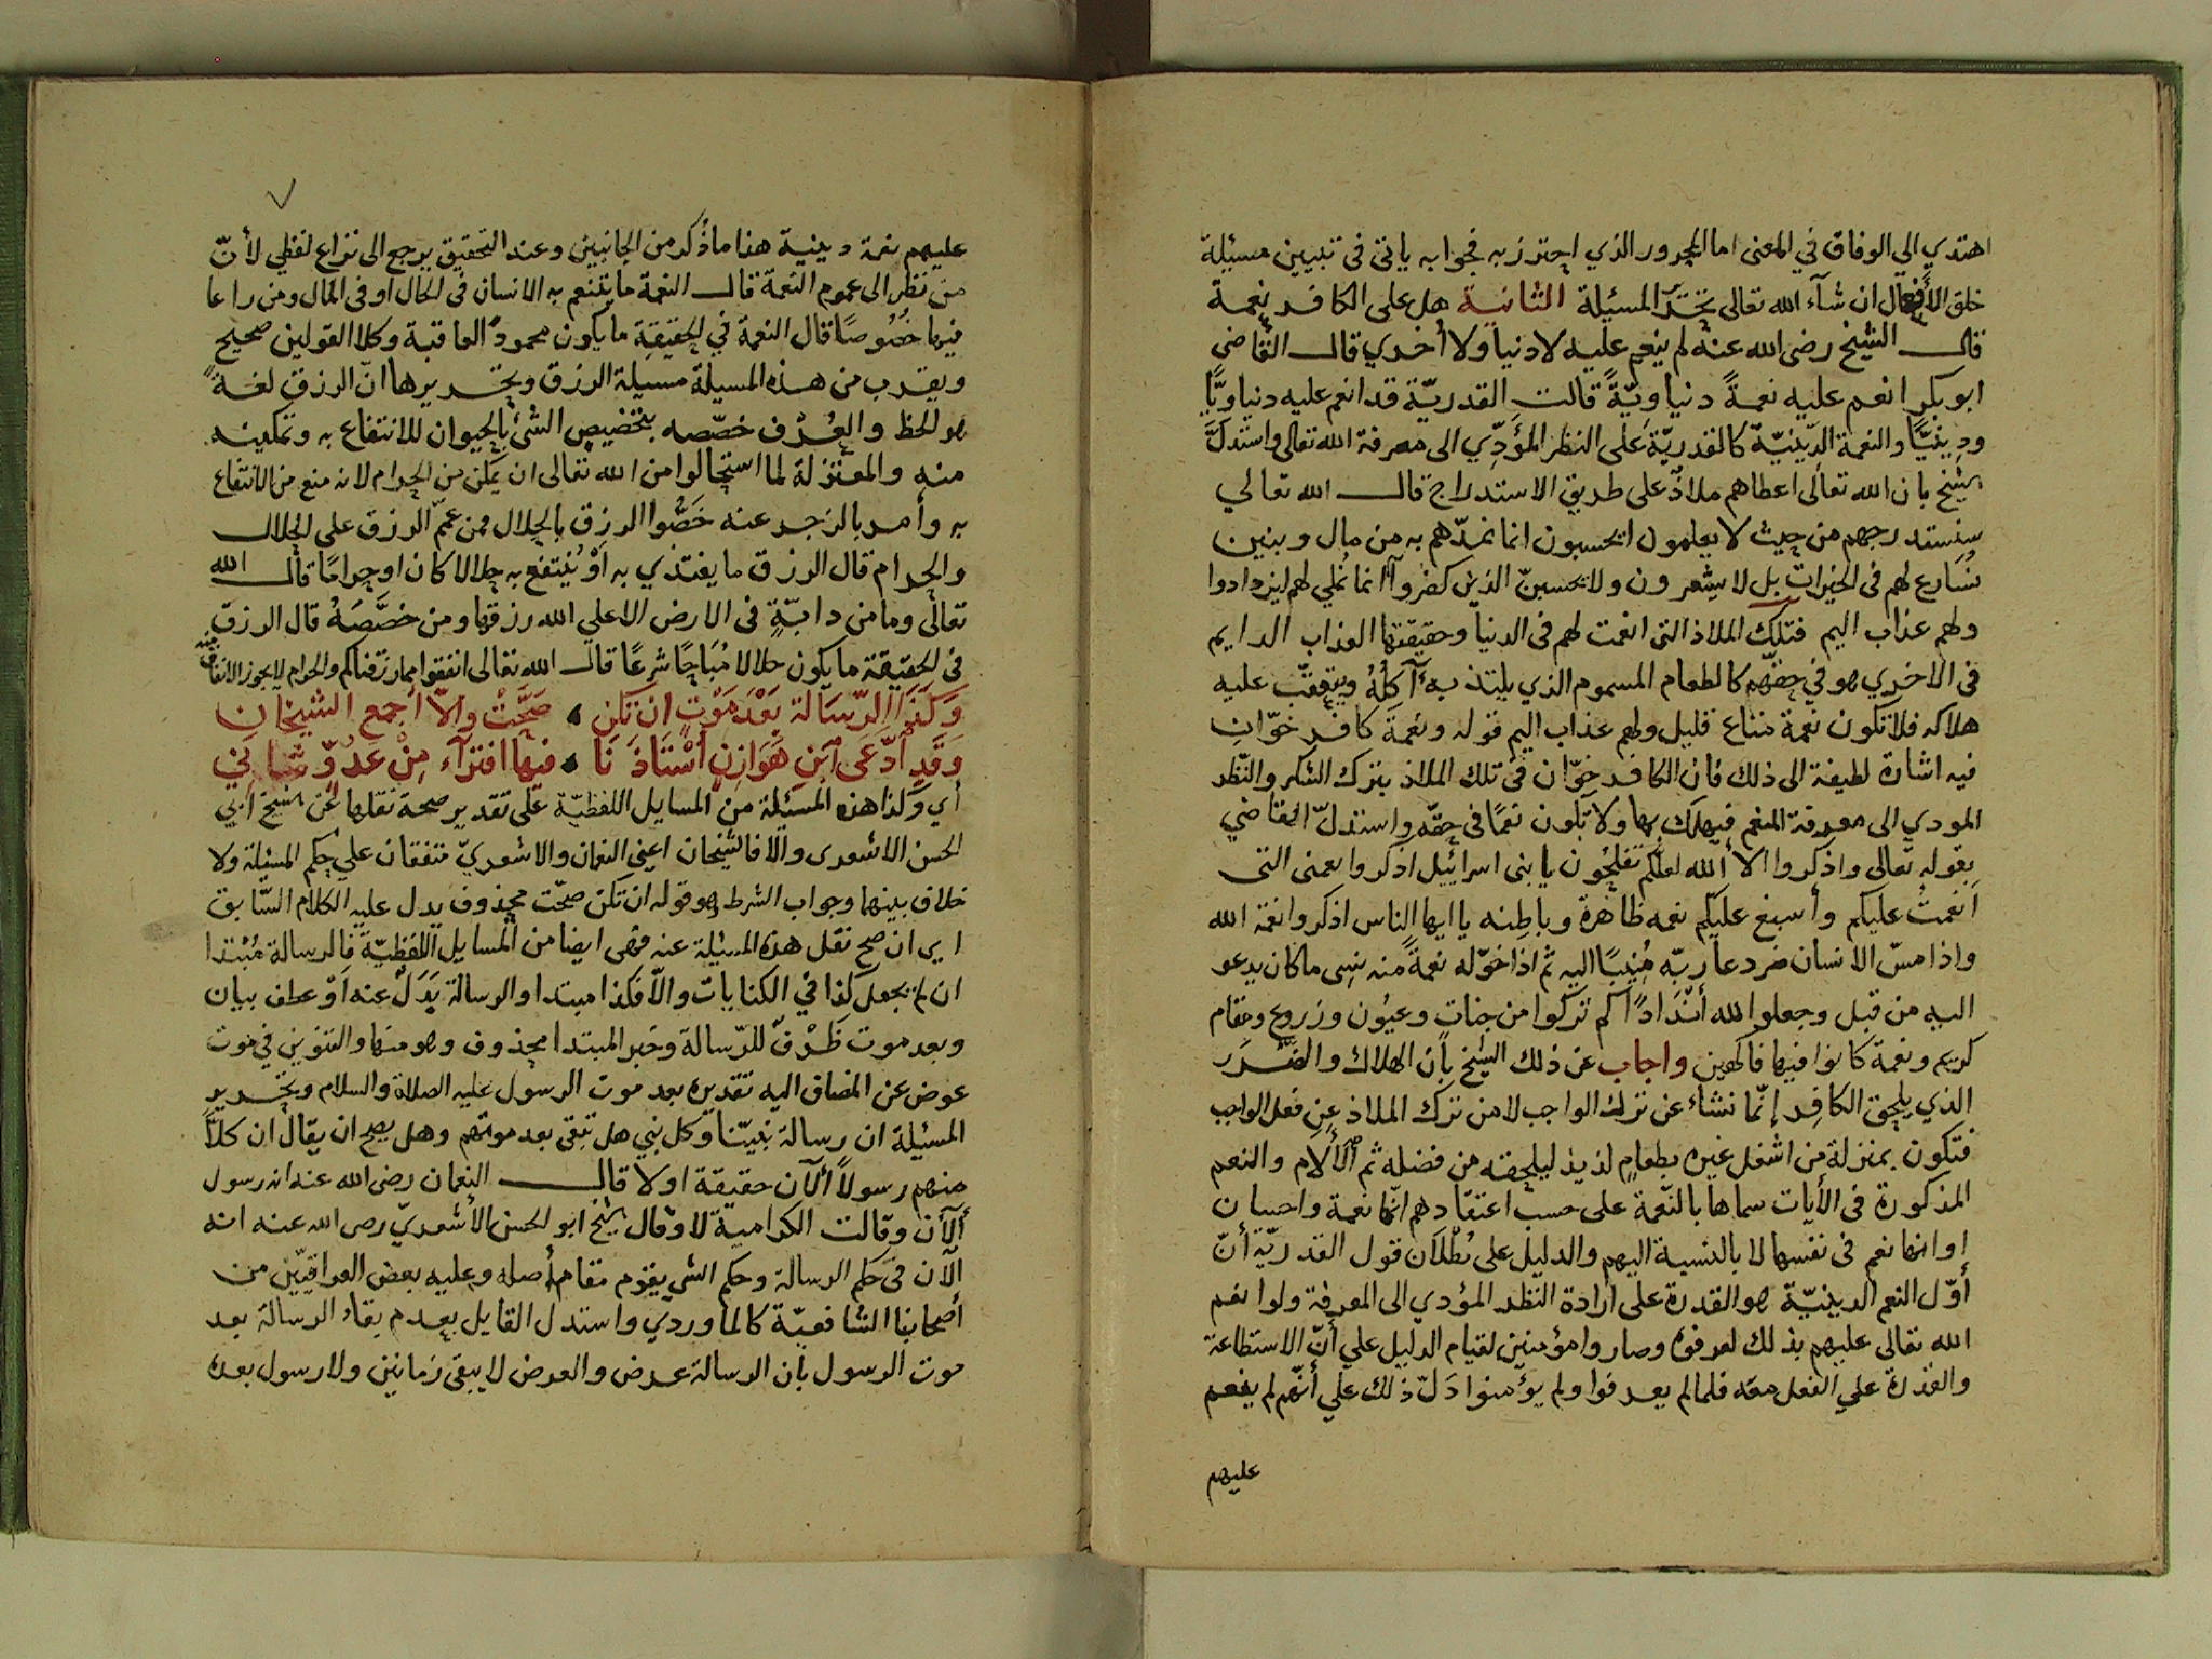 اهتدي الي الوفاق في المعنى اما المحدور الذي احترز به فجوابه ياتى فى تبيين مسيلة
خلق الأفعال ان شآء الله تعالى المسئلة الثانية هل على الكافر نعمة
قال الشيخ رضى الله عنه لم ينعم عليه لا دنيا ولا أخرى قال القاضي
ابو بكر انعم عليه نعمةً دنياويّةً قالت القدريّة قد انعم عليه دنياويًّا
ودينيًّا والنعمة الدّينيّة كالقدريّة على النظر المؤدّي الى معرفة الله تعالى واستدل
الشيخ بان الله تعالى اعطاهم ملاذّ على طريق الاستدراج قال الله تعالي
سنستدرجهم من حيث لا يعلمون ايحسبون انما نمدّهم به من مال وبنين
نُسَارع لهم فى الخيرات بل لا يشعرون ولا تحسبنّ الذين كفروآ انما نُملي لهم ليزدادوا
ولهم عذاب اليم فتلك الملاذ التى انعمت لهم فى الدنيا وحقيقتها العذاب الدايم
فى الاخرى هو في حقّهم كالطعام المسموم الذي يلتذ به آكلُهُ ويتعقّب عليه
هلاكه فلا تكون نعمة متاع قليل ولهم عذاب اليم قوله ونعمة كافر خوّان
فيه اشارة لطيفة الى ذلك فان الكافر خوّان فى تلك الملاذ بترك الشكر والنّظر
المودي الى معرفة المنعم فيهلك بها ولا تكون نعمًا فى حقّه واستدلّ القاضي
بقوله تعالى واذكروا الآ الله لعلّكم تفلحُون يا بنى اسرائيل اذكروا نعمتى التى
اَنعمتُ عليكم وأسبغ عليكم نعمه ظاهرة وباطنه يا ايها الناس اذكروا نعمة الله
واذا مسّ الانسان ضر دعا ربّه مُنِيبًا اليه ثم اذا خوّله نعمةً منه نسى ما كان يدعو
اليه من قبل وجعلوا لله أَنْدَادًا كم تركوا من جنات وعيُون وزروع ومقام
كريم ونعمة كانوا فيها فاكهين واجاب عن ذلك الشيخ بأن الهلاك والضّرَر
الذي يلحق الكافِر إنّما نشاء عن ترك الواجب لا من ترك الملاذ عن فعل الواجب
فتكون بمنزلة من اشغل غيره بطعامٍ لذيذ ليلحقه من فضله ثم الألام والنعم
المذكورة فى الأيات سماها بالنّعمة على حسب اعتقادهم انّها نعمة واحسان
او انها نعم فى نفسها لا بالنسبة اليهم والدليل على بُطْلَان قول القدريّة أنّ
أوّل النعم الدينيّة هو القدرة على ارادة النظر المؤدي الى المعرفة ولو انعم
الله تعالى عليهم بذلك لعرفوه وصاروا مؤمنين لقيام الدليل علي أنّ الاستطاعة
والقدرة علي الفعل معه فلما لم يعرفوا ولم يؤمنوا دَلّ ذلك علي أنّهم لم ينعم
عليهم
عليهم نعمة دينية هذا ما ذُكر من الجانبين وعند التحقيق يرجع الى نزاع لفظي لأنّ
من نَظَر الى عموم النعمة قال النعمة ما يتنعم به الانسان فى الحال او فى المال ومن راعا
فيها خُصُوصًا قال النعمة في الحقيقة ما يكون محمودَ العاقبة وكلا القولين صحيح
ويقرب من هذه المسيلة مسيلة الرزق وتحريرها انّ الرزق لغةً
هو الحظ والعُرْف خصّصه بتخصيص الشئ بالحيوان للانتفاع به وتمكينه
منه والمعتزلة لما استحالوا من الله تعالى ان يمكّن من الحرام لانه منع من الانتفاع
به وأمر بالزجر عنه خَصُّوا الرزق بالحلال فمن عمّم الرزق على الحلال
والحرام قال الرزق ما يغتذي به اوْ يُنتفع به حلالا كان او حراما قال الله
تعالى وما من دابّةٍ فى الارض الا علي الله رزقها ومن خصَّصَهُ قال الرزق
فى الحقيقة ما يكون حلالا مُبَاحًا شرعًا قال الله تعالى انفقوا مما رزقناكم والحرام لا يجوز الانفاق منه
وَكَذَا الرّسَالة بَعْدَ مَوْتٍ ان تكن ۰ صَحَّتْ والّا أجمع الشيخان
وَقَدِ ادّعَى ابن هَوَازِنٍ أُسْتَاذَنَا ۰ فيها افتراء مِنْ عَدُوٍّ شانِي
أي وكذا هذه المسْئلة من المسايل اللفظيّة على تقدير صحة نقلها عن الشيخ ابي
الحسن الاشعرى والّا فالشّيخان اعيني النعمان والاشعريّ متفقان علي حكم المسئلة ولا
خلاف بينهما وجواب الشرط وهو قوله ان تكن صحّت محذوف يدل عليه الكلام السّابق
اي ان صح نقل هذه المسئلة عنه فهى ايضا من المسايل اللفظيّة فالرسالة مُبْتدا
ان لم يجعل كذا في الكنايات والّا فكذا مبتدا والرسالة بَدَلٌ عنه اَوْ عطف بيان
وبعد موت ظَرْفٌ للرّسالة وخَبر المبتدا محذوف وهو منها والتنوين في موت
عوض عن المضاف اليه تقديره بعد موت الرسول عليه الصلاة والسلام وتحرير
المسئيلة ان رسالة نبيّنا وكل نبي هل تبقى بعد موتهم وهل يصح ان يقال ان كلاًّ
منهم رسولاً ألآن حقيقة او لا قال النعمان رضى الله عنه انه رسول
ألآن وقالت الكرامية لا وقال الشيخ ابو الحسن الأشعريّ رضى الله عنه انه
الآن فى حكم الرسالة وحكم الشي يقوم مقام أصله وعليه بعض العراقيّين من
أصحابنا الشافعيّة كالماوردي واستدل القايل بعدم بقاء الرسالة بعد
موت الرسول بأن الرسالة عرض والعرض لا يبقى زمانين ولا رسول بعده